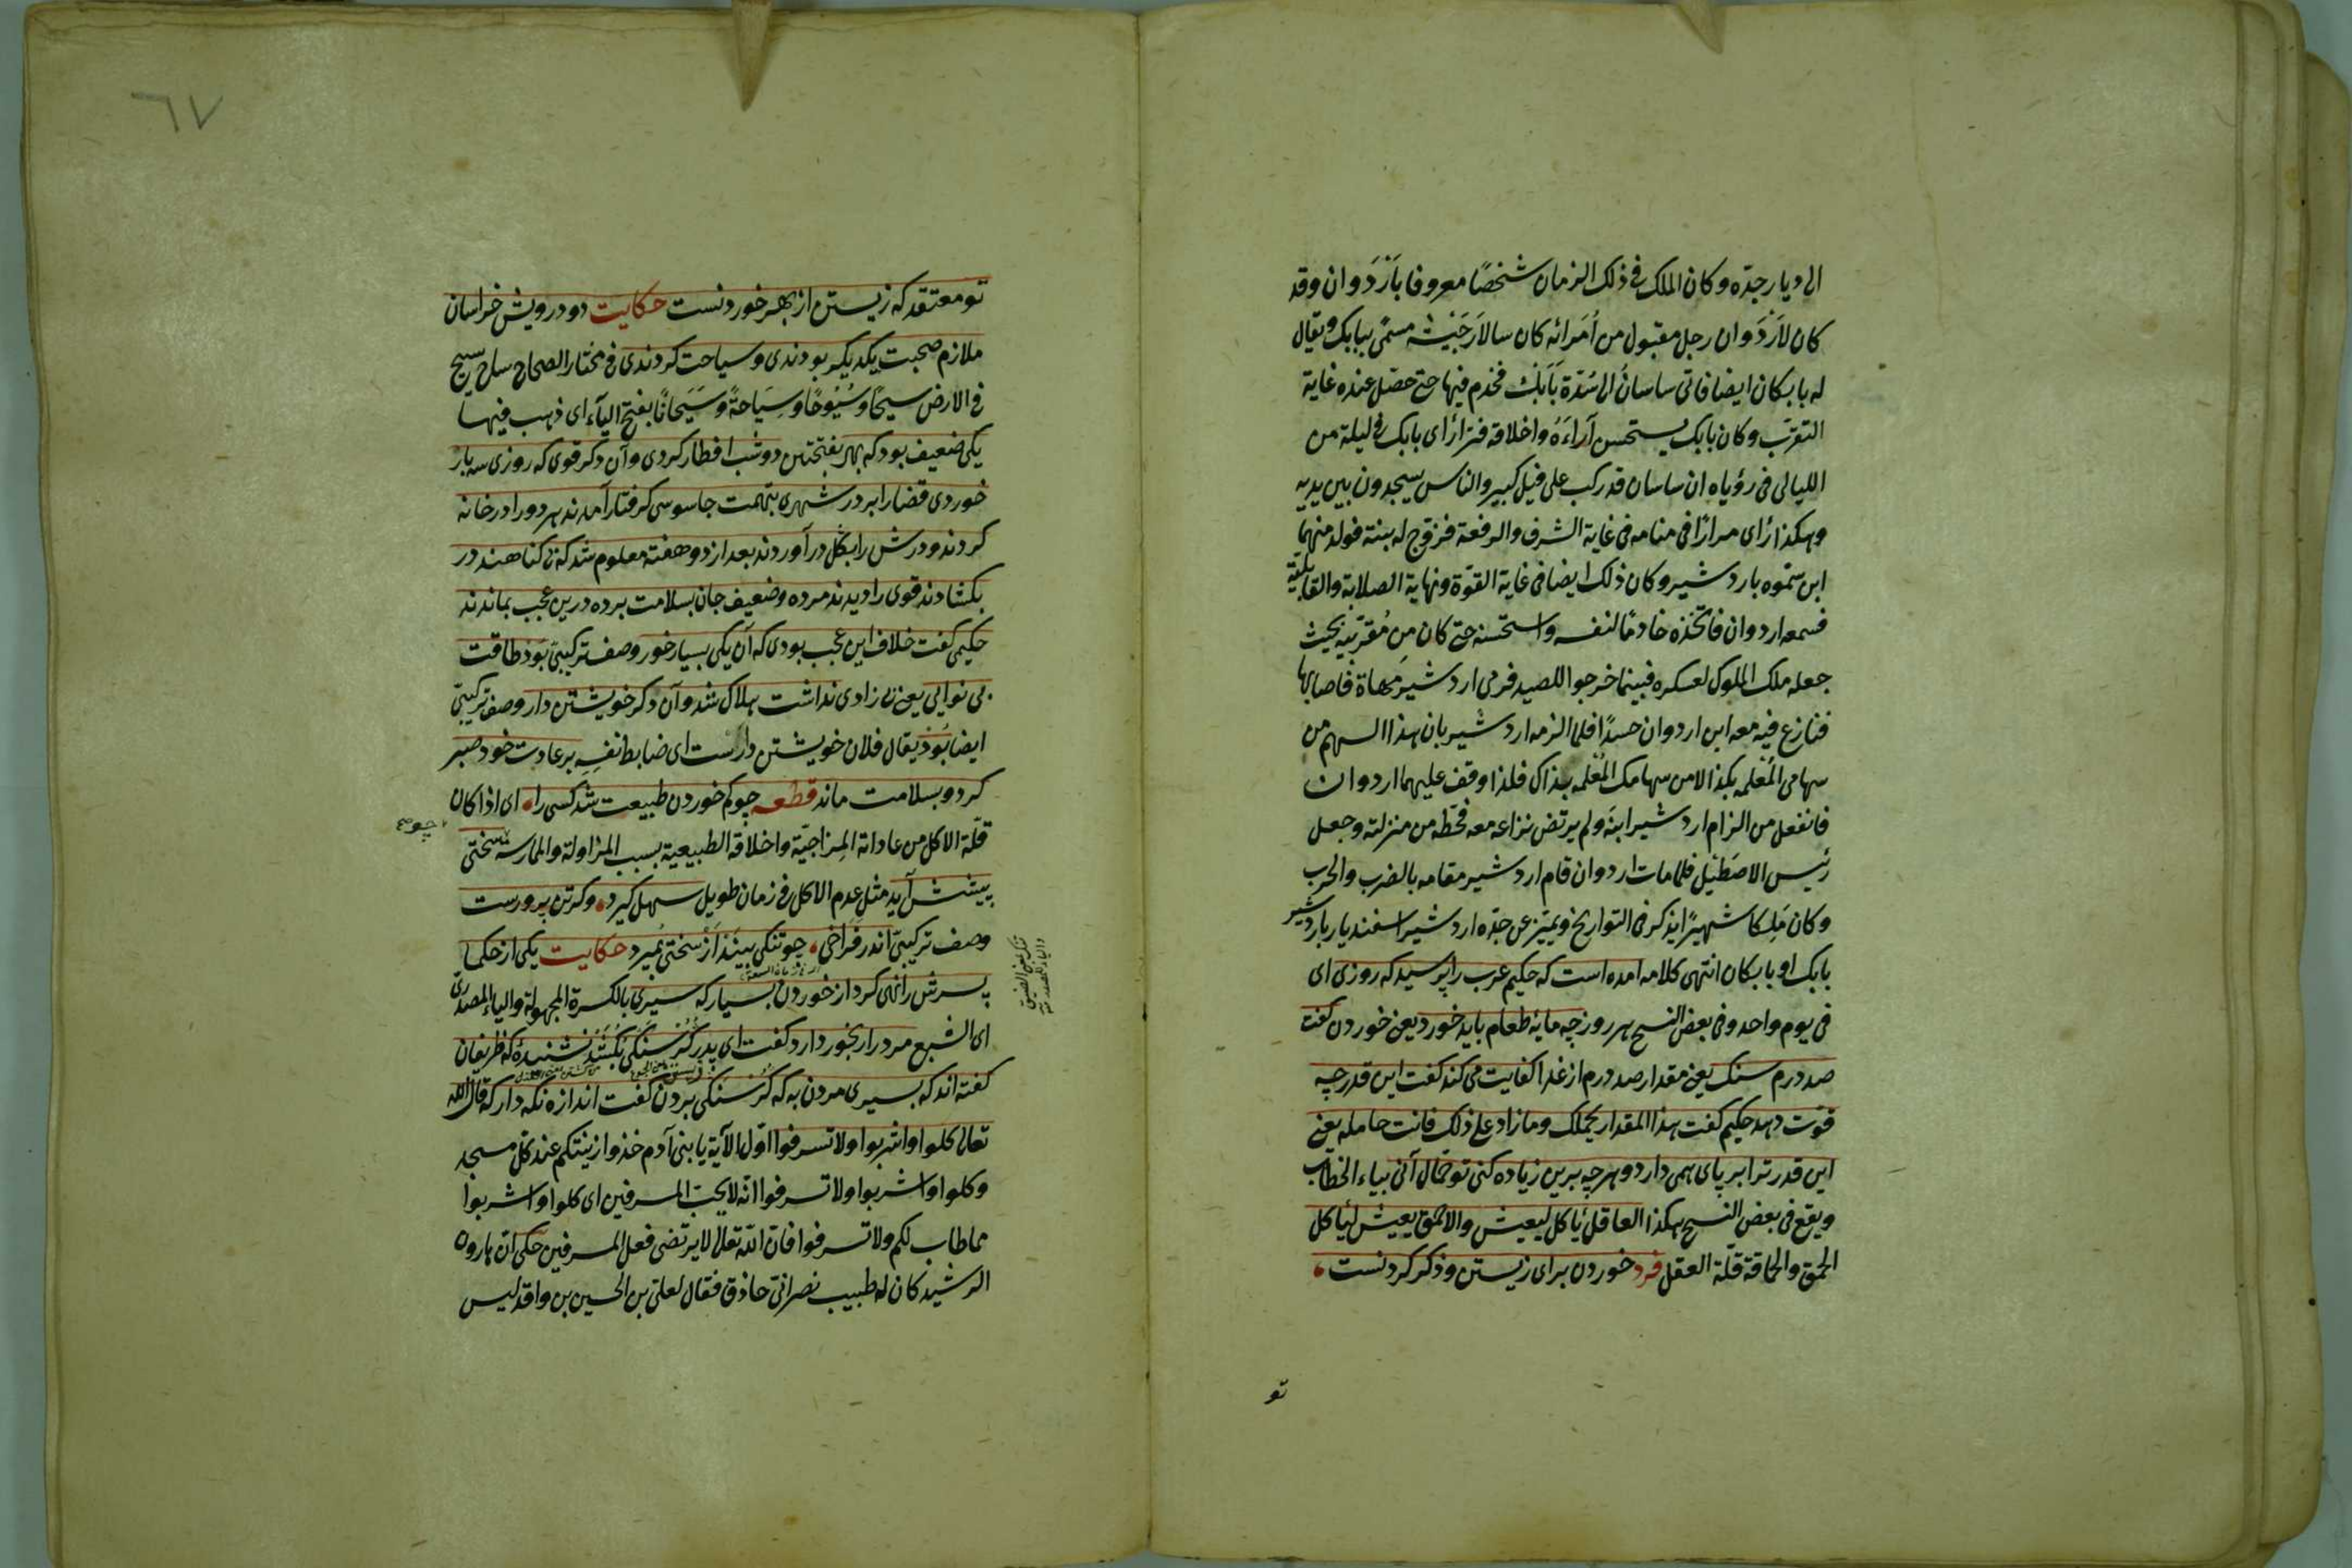 الى ديار جدّه وكان الملك فى ذلك الزمان شخصًا معروفا بأَرْدَوان وقد
كان لاَرْدَوان رجل مقبول من اُمَرائه كان سالارَ جَيْشه مسمّى ببابك ويقال
له بابكان ايضا فاتى ساسانُ الى سُدّة بَابَك فخدم فيها حتى حصّل عنده غاية
التقرّب وكان بابك يستحسن آراءَهُ واخلاقه فرأى بابك فى ليلة من
الليالى فى رؤياه ان ساسان قد ركب على فيل كبير والناس يسجدون بين يديه
وهكذا رأى مرارًا فى منامه فى غاية الشرف والرفعة فزوّج له بنته فولد منهما
ابن سمّوه باردشير وكان ذلك ايضا فى غاية القوّة ونهاية الصلابة والقابليّة
فسمعه اردوان فاتّخذه خادمًا لنفسه واستحسنه حتى كان من مُقرّبيه بحيث
جعله ملك الملوك لعسكره فبينما خرجوا للصيد فرمى اردشير مهاة فاصابها
فنازع فيه معه ابن اردوان حسدًا فلما الزمه اردشير بان هذا السهم من
سهامى المُعْلَمه بكذا لا من سهامك المُعْلَمه بذاك فلذا وقف عليهما اردوان
فانفعل من الزام اردشير ابنَه ولم يرتض نزاعه معه فحَطّه من منزلته وجعل
رئيس الاصْطَبْل فلما مات اردوان قام اردشير مقامه بالضرب والحرب
وكان مَلِكا شهيرًا يذكر فى التواريخ ويميّز عن جدّه اردشير اسفنديار باردشير
بابك او بابكان انتهى كلامه امده است كه حكيم عرب را پرسيد كه روزى اى
فى يوم واحد وفى بعض النسخ هر روز چه مايه طعام بايد خورد يعنى خوردن كفت
صد درم سنك يعنى مقدار صد درم از غدا كفايت مى كند كفت اين قدر چه
قوّت دهد حكيم كفت هذا المقدار يحملك وما زاد على ذلك فانت حامله يعنى
اين قدر ترا بر پاى همى دارد وهر چه برين زياده كنى تو حمّال آنى بياء الخطاب
ويقع فى بعض النسخ هكذا العاقل يأكل ليعيش والاحمق يعيش ليأكل
الحمق والحماقة قلّة العقل فرد خوردن براى زيستن وذكر كردنست
تو
٦٧
تو معتقد كه زيستن از بهر خوردنست حكايت دو درويش خراسان
ملازم صحبت يكديكر بودندى وسياحت كردندى فى مختار الصحاح ساح يسيح
فى الارض سيحًا وسُيُوحًا وسِيَاحَةً وسَيَحانًا بفتح الياء اى ذهب فيها
يكى ضعيف بود كه بهر بفتحتين دو شب افطار كردى وآن دكر قوى كه روزى سه بار
خوردى قضا را بر در شهرى بتهمت جاسوسى كرفتار آمدند هر دو را در خانه
كردند ودرش را بگل درآوردند بعد از دو هفته معلوم شد كه بى كناهند در
بكشادند قوى را ديدند مرده وضعيف جان بسلامت برده درين عجب بماندند
حكيمى كفت خلاف اين عجب بودى كه آن يكى بسيار خور وصف تركيبىّ بَوَد طاقت
بى نوايى يعنى بى زادى نداشت هلاك شد وآن دكر خويشتن دار وصف تركيبىّ
ايضا بُود يقال فلان خويشتن دارست اى ضابط نفسِه بر عادت خود صبر
كرد وبسلامت ماند قطعه چو كم خوردن طبيعت شد كسى را اى اذا كان
قلّة الاكل من عاداته المِزاجيّة واخلاقه الطبيعية بسبب المزاولة والممارسة سختى
چو
پيشش آيد مثل عدم الاكل فى زمان طويل سهل كيرد وكر تن پرورست
وصف تركيبىّ اندر فراخى چو تنكى بيند از سختى بميرد حكايت يكى از حكما
تنكى بمعنى الضيق والياء المصدرية
پسرش را نهى كرد از خوردن بسيار كه سيرى بالكسرة المجهولة والياء المصدرىّ
اى الشبع مرد را رنجور دارد كفت اى پدر كُرُسنكى بكُشَد نشنيدۀ كه ظريفان
كفته اند كه بسيرى مردن به كه كُرُسنكى بردن كفت اندازه نكه دار كه قال اللّه
تعالى كلوا واشربوا ولا تسرفوا اوّل الآية يا بنى آدم خذوا زينتكم عند كلّ مسجد
وكلوا واشربوا ولا تسرفوا انّه لا يحبّ المسرفين اى كلوا واشربوا
مما طاب لكم ولا تسرفوا فانّ اللّه تعالى لا يرتضى فعل المسرفين حكى انّ هارون
الرشيد كان له طبيب نصرانىّ حاذق فقال لعلىّ بن الحسين بن واقد ليس